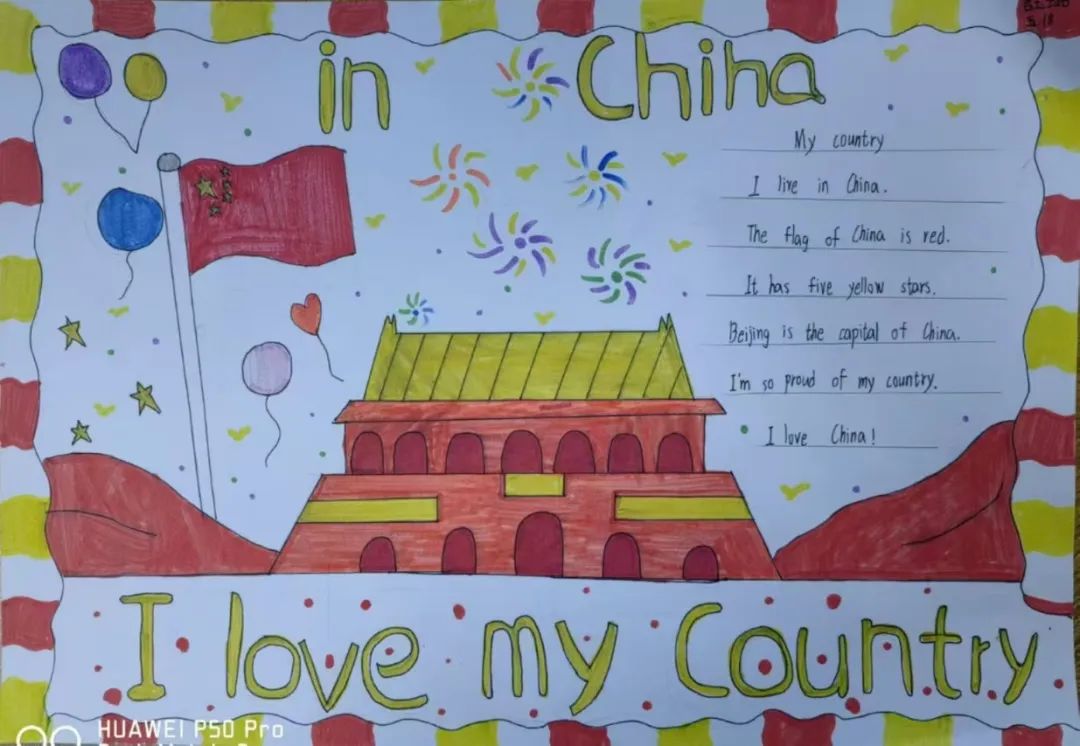 in China
My country
I live in China.
The flag of China is red.
It has five yellow stars.
Beijing is the capital of China.
I'm so proud of my country.
I love China!
I love my Country
HUAWEI P50 Pro